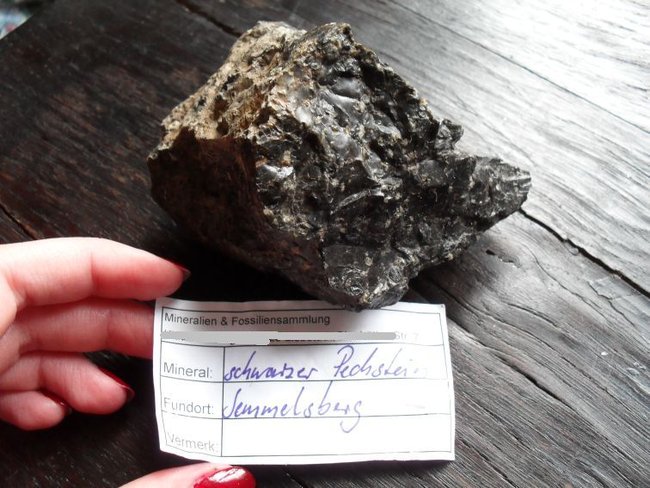 Mineralien & Fossiliensammlung
Mineral: schwarzer Pechstein
Fundort: Semmelsberg
Vermerk: